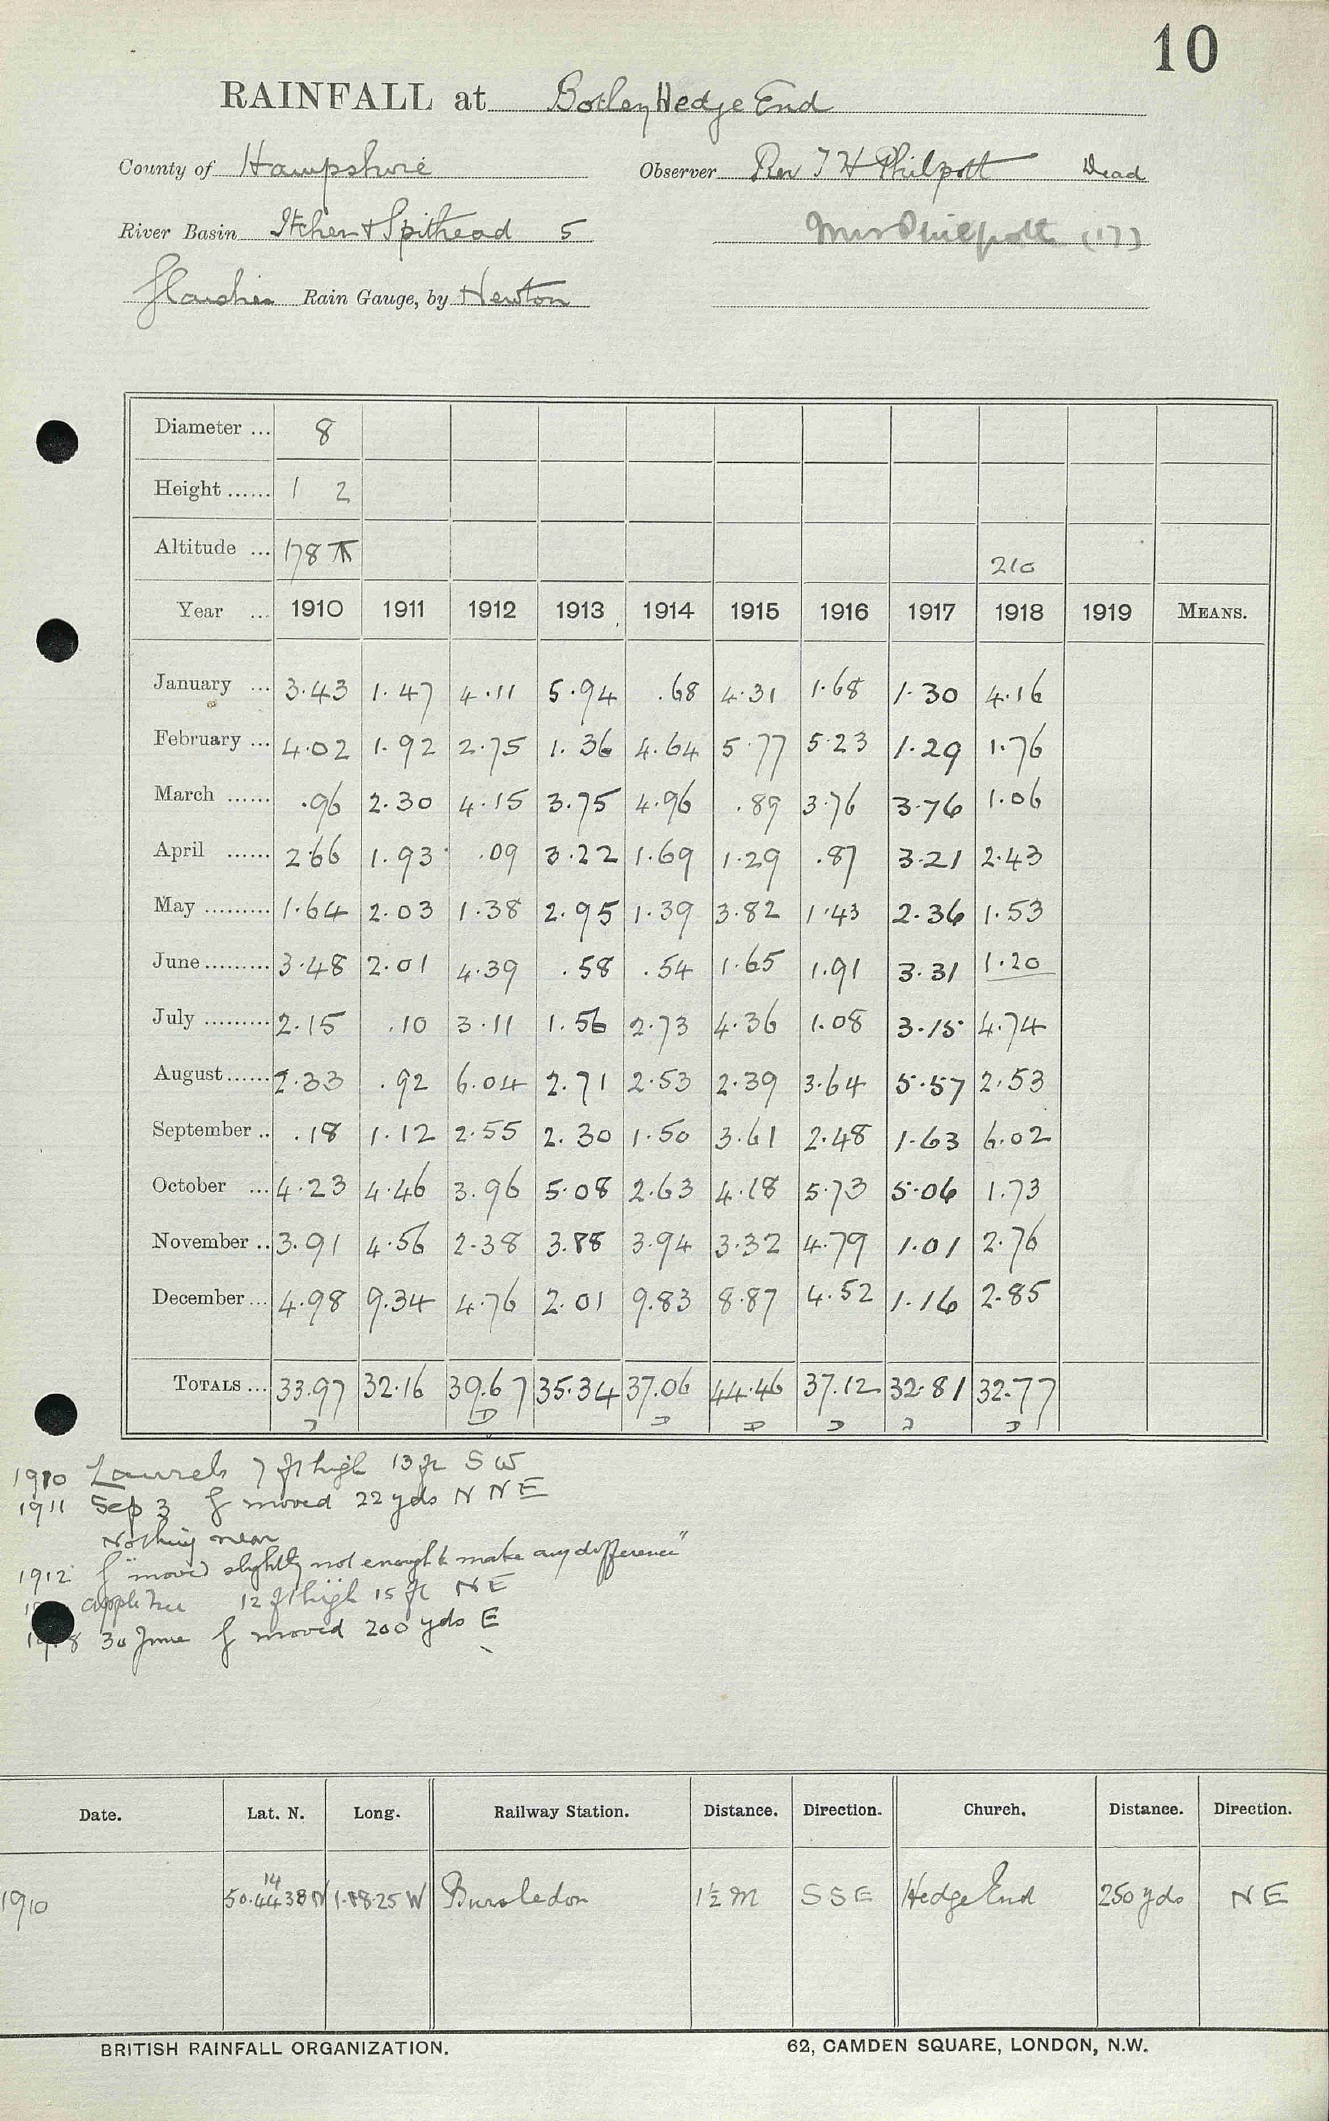 10
RAINFALL at Botley Hedge End
County of Hampshire Observer Rev T H Philpott Dead
River Basin Itchen & Spithead 5 Mrs Philpott (17)
Rain Gauge, by Newton
Diameter ... 8
Height ...... 1 2
Altitude ... 178 210
Year ... 1910 1911 1912 1913 1914 1915 1916 1917 1918 1919 MEANS.
January ... 3.43 1.47 4.11 5.94 .68 4.31 1.68 1.30 4.16
February ... 4.02 1.92 2.75 1.36 4.64 5.77 5.23 1.29 1.76
March ...... .96 2.30 4.15 3.75 4.96 .89 3.76 3.76 1.06
April ...... 2.66 1.93 .09 3.22 1.69 1.29 .87 3.21 2.43
May ......... 1.64 2.03 1.38 2.95 1.39 3.82 1.43 2.36 1.53
June ......... 3.48 2.01 4.39 .58 .54 1.65 1.91 3.31 1.20
July ......... 2.15 .10 3.11 1.56 2.73 4.36 1.08 3.15 4.74
August ...... 2.33 .92 6.04 2.71 2.53 2.39 3.64 5.57 2.53
September .. .18 1.12 2.55 2.30 1.50 3.61 2.48 1.63 6.02
October ... 4.23 4.46 3.96 5.08 2.63 4.18 5.73 5.06 1.73
November .. 3.91 4.56 2.38 3.88 3.94 3.32 4.79 1.01 2.76
December ... 4.98 9.34 4.76 2.01 9.83 8.87 4.52 1.16 2.85
TOTALS ... 33.97 32.16 39.67 35.34 37.06 44.46 37.12 32.81 32.77
D D D D D D D
1910 Laurels 7 ft high 13 ft SW
1911 Sep 3 g moved 22 yds N N E
Nothing near
1912 g "moved slightly not enough to make any difference"
apple tree 12 ft high 15 ft NE
30 June g moved 200 yds E
Date. Lat. N. Long. Railway Station. Distance. Direction. Church. Distance. Direction.
14
1910 50.44 38 N 1.18.25 W Bursledon 1½ M SSE Hedge End 250 yds NE
BRITISH RAINFALL ORGANIZATION. 62, CAMDEN SQUARE, LONDON, N.W.